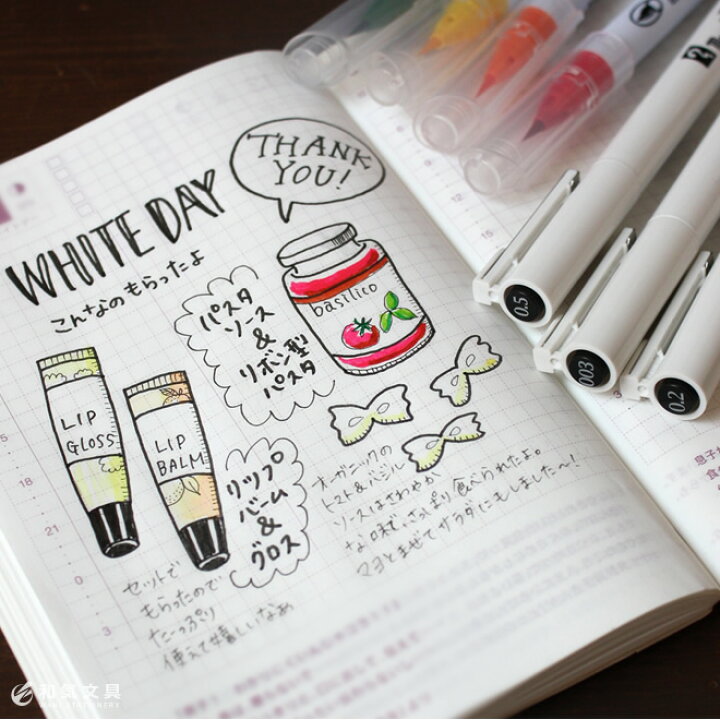 THANK
YOU!
WHITE DAY
こんなのもらったよ
パスタ
ソース
&
リボン型
パスタ
basilico
LIP
GLOSS
LIP
BALM
リップ
バーム
&
グロス
オーガニックの
トマト&バジル
ソースはさわやか
な味で、さっぱり食べられたよ。
マヨとまぜてサラダにもしました〜!
セットで
もらったので
たーっぷり
使えて嬉しいなぁ
0.5
003
0.2
2
12
15
15
18
21
0
3
息子
食
和気文具
WAKI STATIONERY